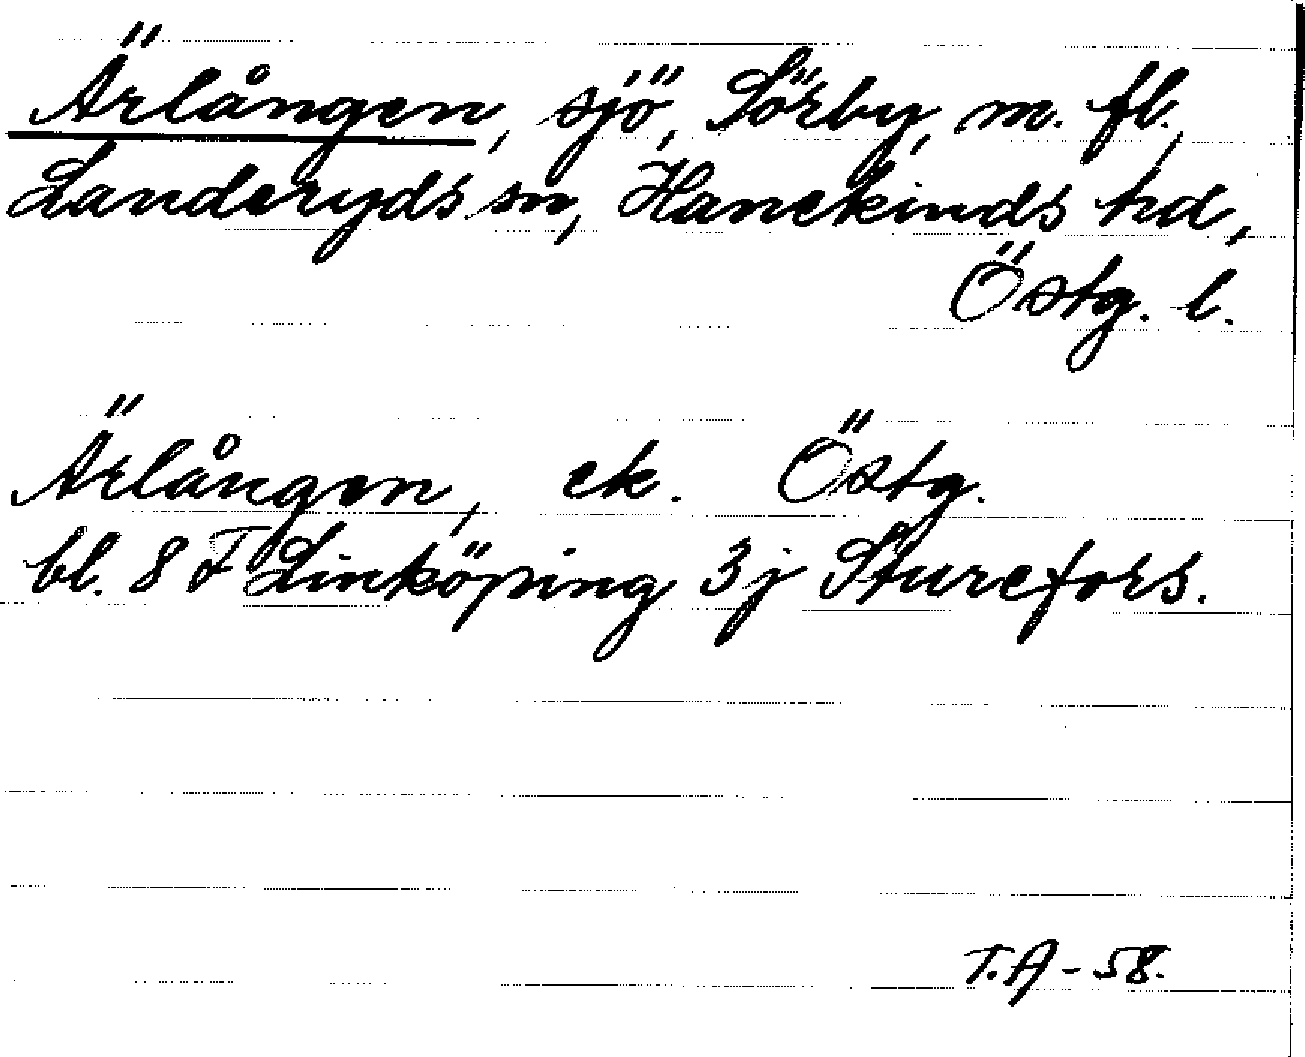 Ärlången, sjö, Sörby, m. fl.,
Landeryds sn, Hanekinds hd,
Östg. l.
Ärlången, ek. Östg.
bl. 8 F Linköping 3j Sturefors.
T.A-58.